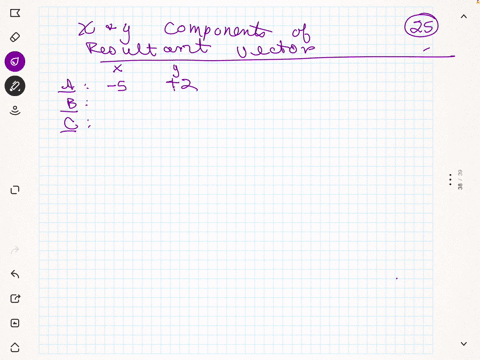 x & y Components of
Resultant vector
25
x y
A: -5 +2
B:
C:
38 / 39